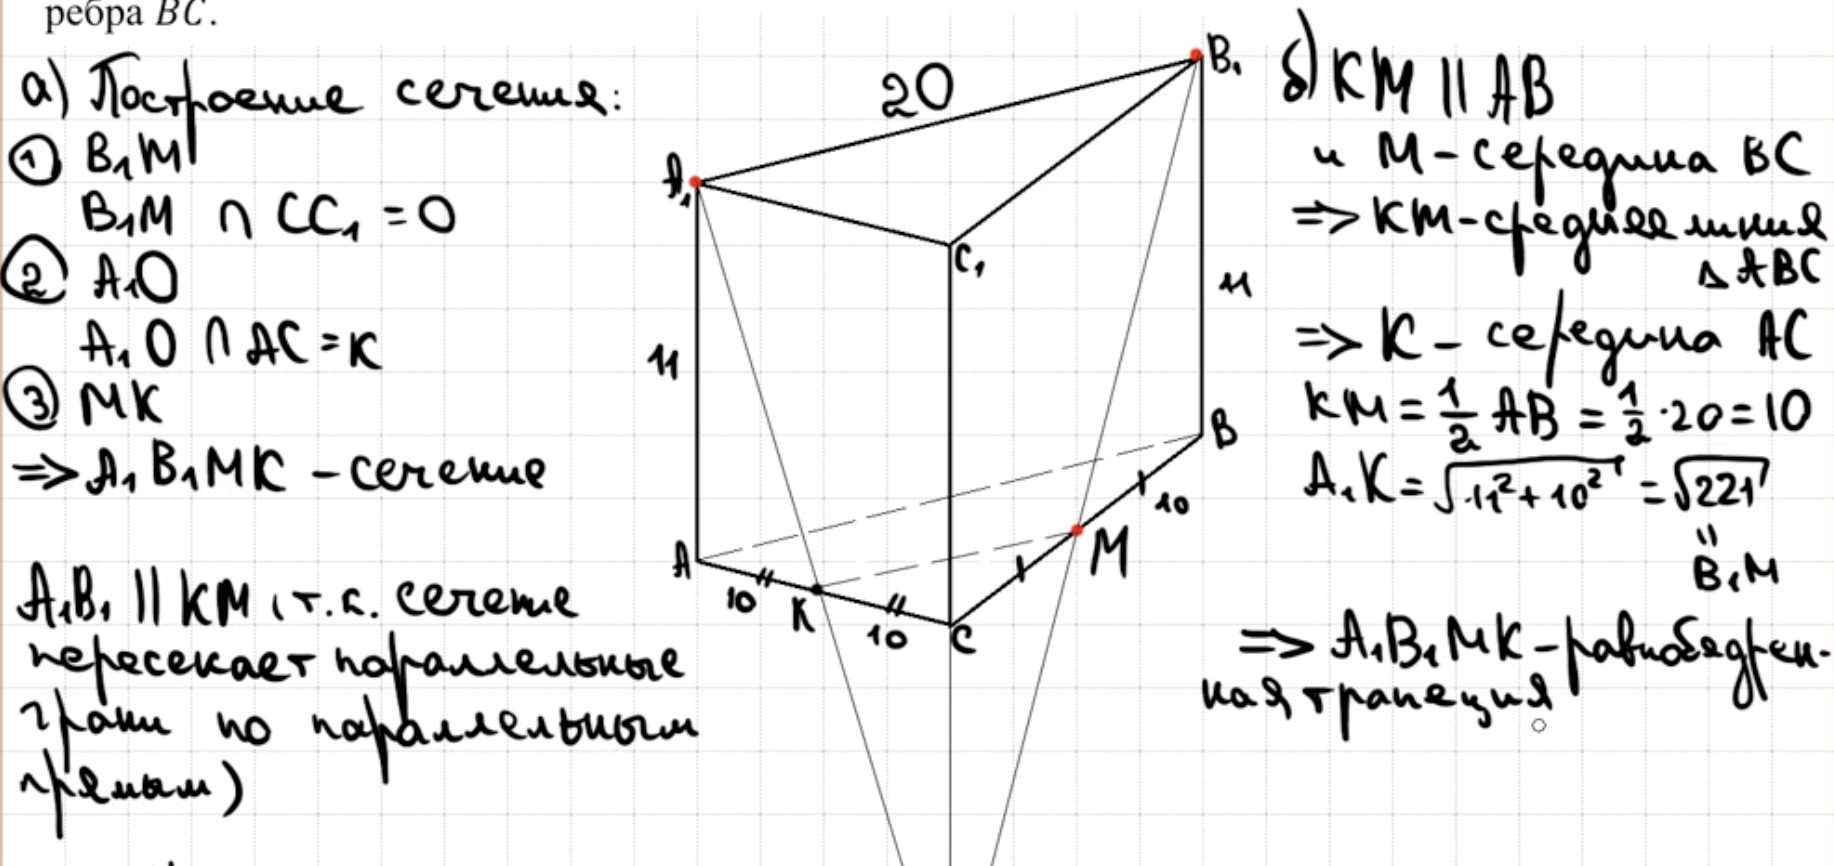 ребра BC.
а) Построение сечения:
① B₁M
B₁M ∩ CC₁ = O
② A₁O
A₁O ∩ AC = K
③ MK
=> A₁B₁MK – сечение
A₁B₁ || KM, т.к. сечение
пересекает параллельные
грани по параллельным
прямым)
20
B₁
A₁
C₁
11
11
B
10
M
A
10
K
10
C
б) KM || AB
и M – середина BC
=> KM – средняя линия
△ ABC
=> K – середина AC
KM = 1/2 AB = 1/2 · 20 = 10
A₁K = √11² + 10² = √221
"
B₁M
=> A₁B₁MK – равнобедрен-
ная трапеция